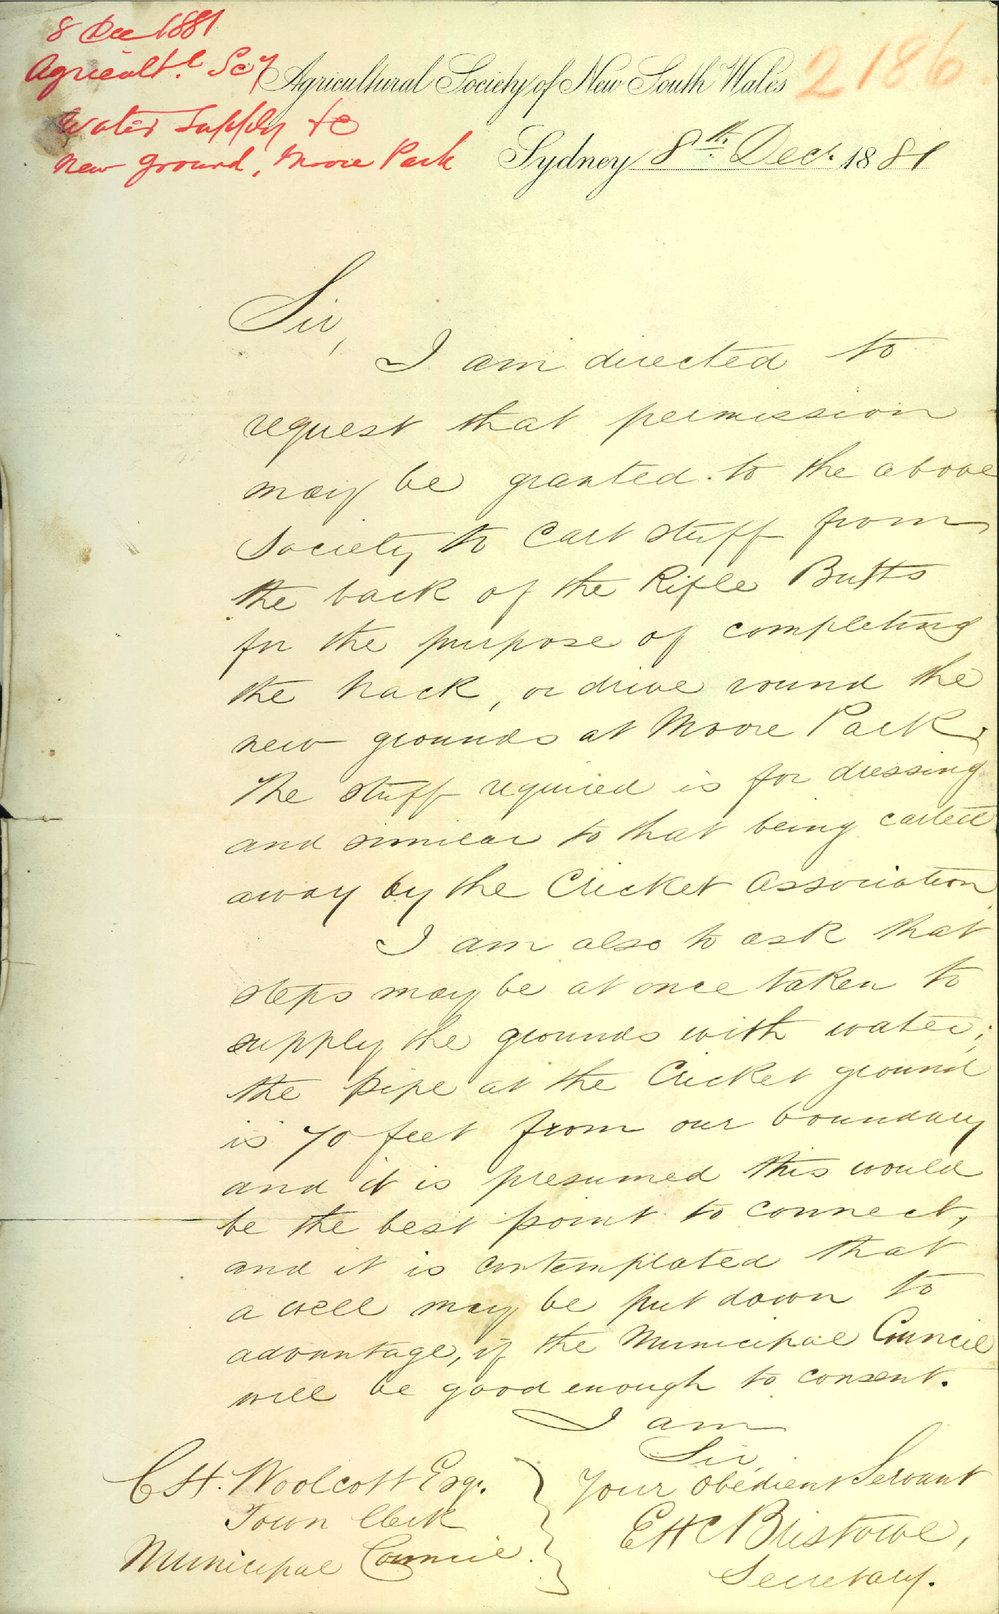 8 Dec 1881
Agricult.l Socy
Water Supply &c
New ground, Moore Park
2186
Agricultural Society of New South Wales
Sydney 8th. Dec. 1881
Sir,
I am directed to
request that permission
may be granted to the above
Society to Cart stuff from
the back of the Rifle Butts
for the purpose of completing
the track, or drive round the
new grounds at Moore Park,
The stuff required is for dressing
and similar to that being carted
away by the Cricket Association
I am also to ask that
steps may be at once taken to
supply the grounds with water;
the pipe at the Cricket ground
is 70 feet from our boundary
and it is presumed this would
be the best point to connect,
and it is contemplated that
a well may be put down to
advantage, if the Municipal Council
will be good enough to consent.
I am
Sir,
Your Obedient Servant
EHC Bristowe,
Secretary.
C H. Woolcott Esq.
Town Clerk
Municipal Council.